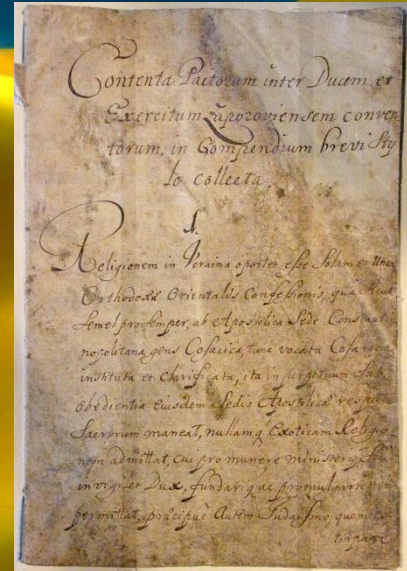 Contenta Pactorum inter Ducem et
Exercitum Zaporoviensem conven
torum, in Compendium brevi Sty
lo collecta.
1.
Religionem in Ucraina oportet esse Solam et Unam
Orthodoxæ Orientalis Confessionis, qua
semel pro semper, ab Apostolica Sede Constanti
nopolitana gens Cosacica, tunc vocata
instituta et clarificata, ita in perpetuum Sub
obedientia eiusdem Sedis Apostolicæ respectu
Sacrorum maneat, nullamq Exoticam Religio
nem admittat, cui pro munere ministerii
invigilet Dux, fundariqve promulgari
permittat, præcipuè Autem Judaismo